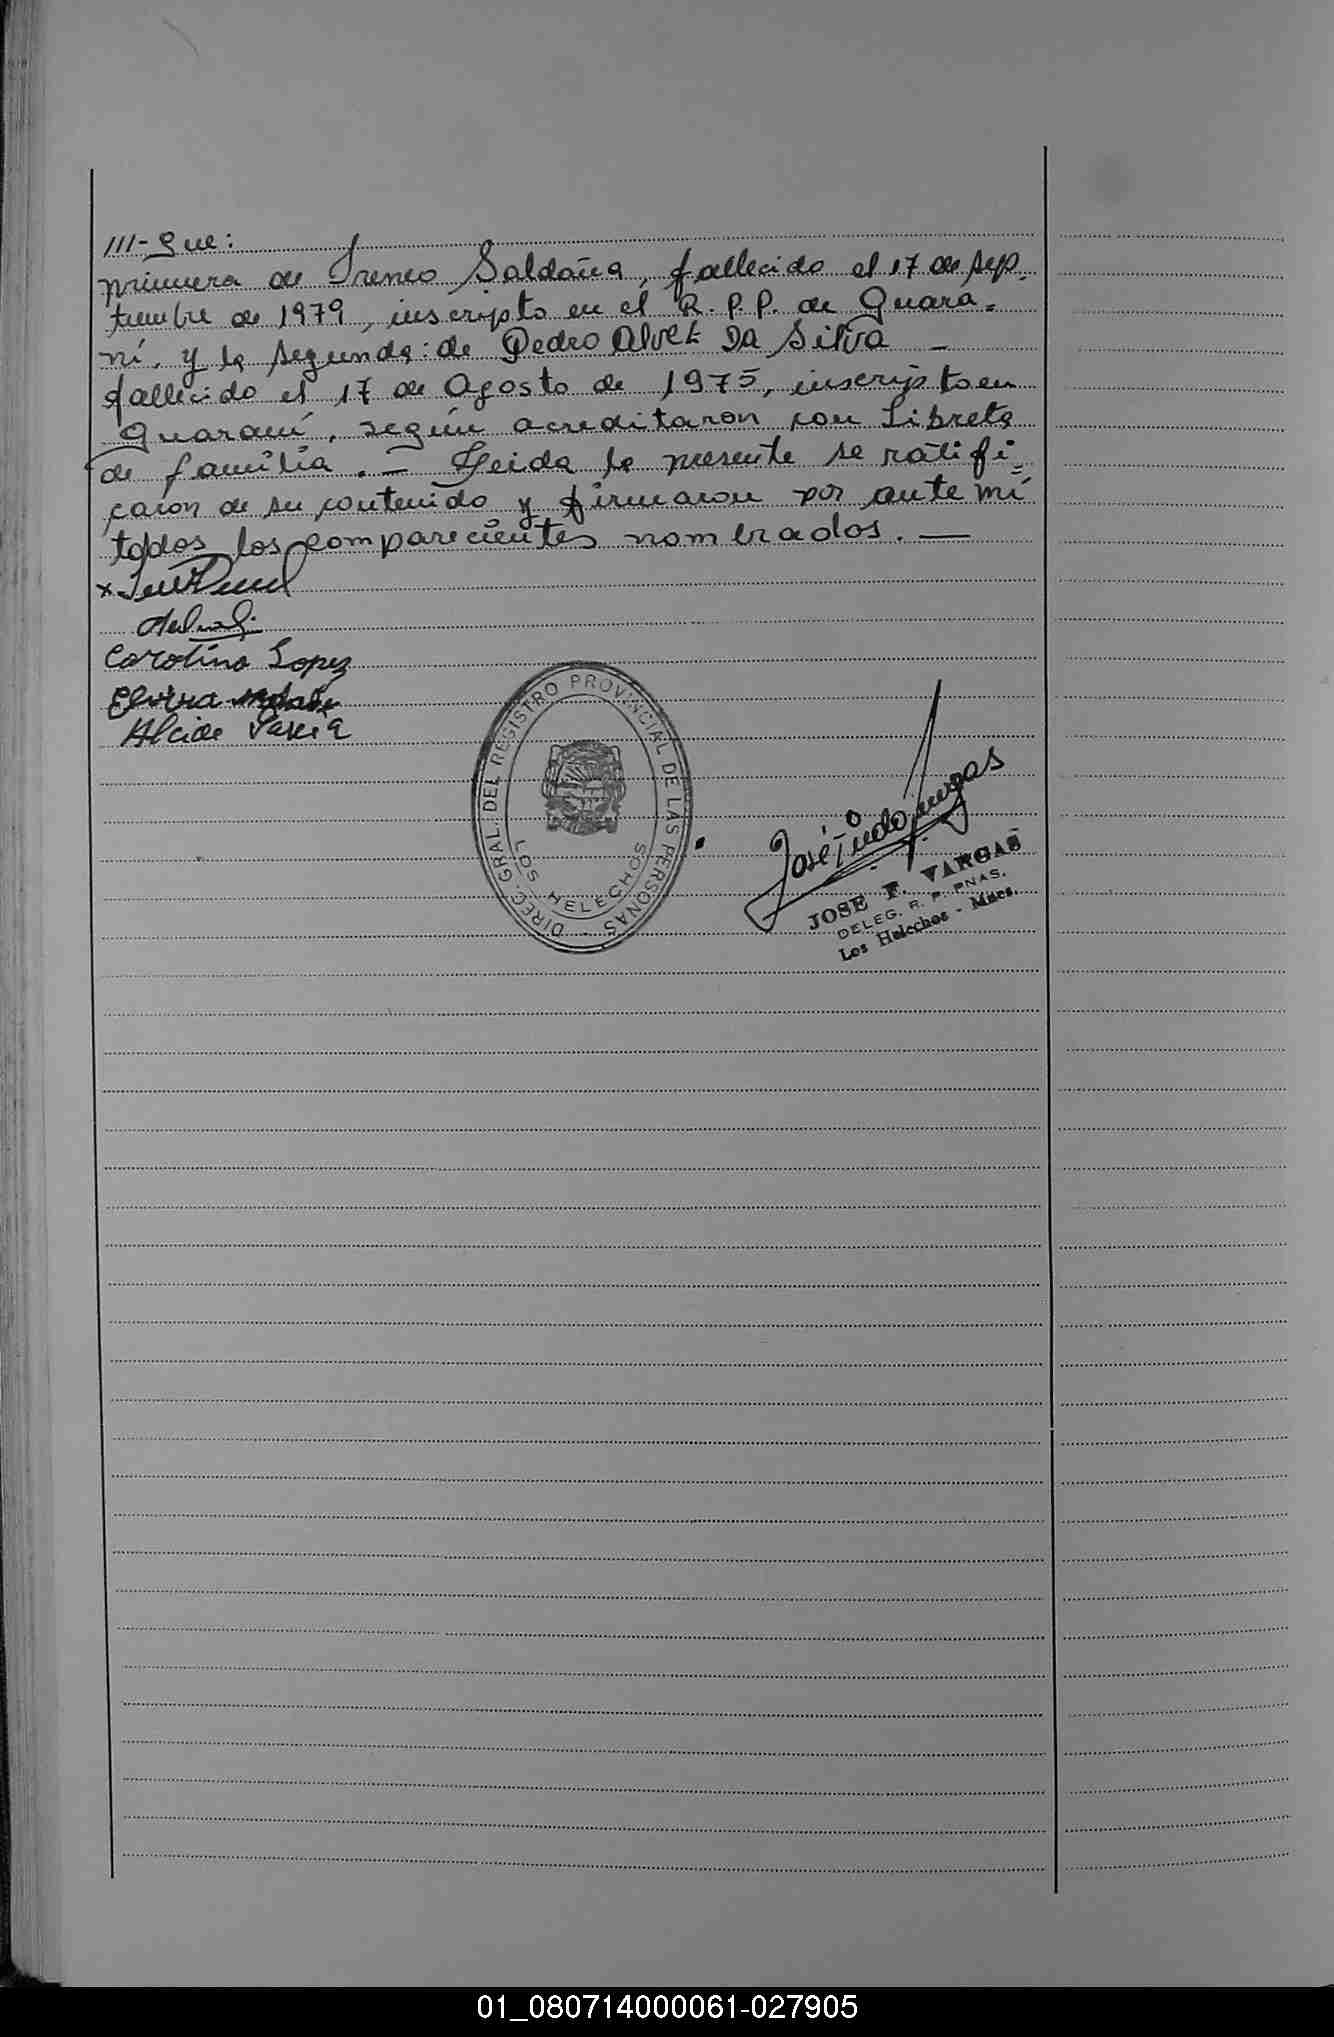 III- Que:
primera de Ireneo Saldaña, fallecido el 17 de sep
tiembre de 1979, inscripto en el R.P.P. de Guara=
ní, y la segunda: de Pedro Alvez Da Silva —
fallecido el 17 de Agosto de 1975, inscripto en
Guaraní, según acreditaron con Libreta
de familia. — Leida la presente se ratifi=
caron de su contenido y firmaron por ante mí
todos los comparecientes nombrados. —
Carolina Lopez
Elvira
Alcide
DIREC. GRAL. DEL REGISTRO PROVINCIAL DE LAS PERSONAS
LOS HELECHOS
José F. Vargas
JOSE F. VARGAS
DELEG. R. P. PNAS.
Los Helechos - Mnes.
01_080714000061-027905